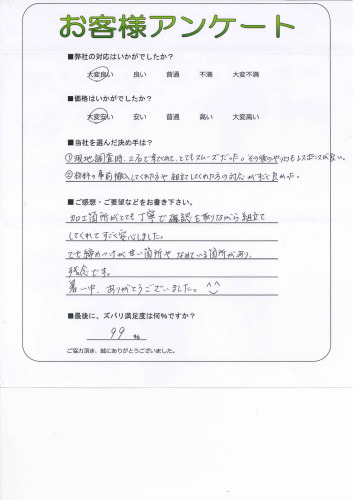 お客様アンケート
■弊社の対応はいかがでしたか?
大変良い 良い 普通 不満 大変不満
■価格はいかがでしたか?
大変安い 安い 普通 高い 大変高い
■当社を選んだ決め手は?
①現地調査時、二名で来てくれて、とてもスムーズだった。その後のやり取りもレスポンスが良い。
②材料の事前搬入してくれた方や組立してくれた方の対応がすごく良かった。
■ご感想・ご要望などをお書き下さい。
加工箇所がとても丁寧で確認を取りながら組立て
してくれてすごく安心しました。
でも締めつけが甘い箇所や なめている箇所があり、
残念です。
暑い中、ありがとうございました。^^
■最後に、ズバリ満足度は何%ですか?
99 %
ご協力頂き、誠にありがとうございました。